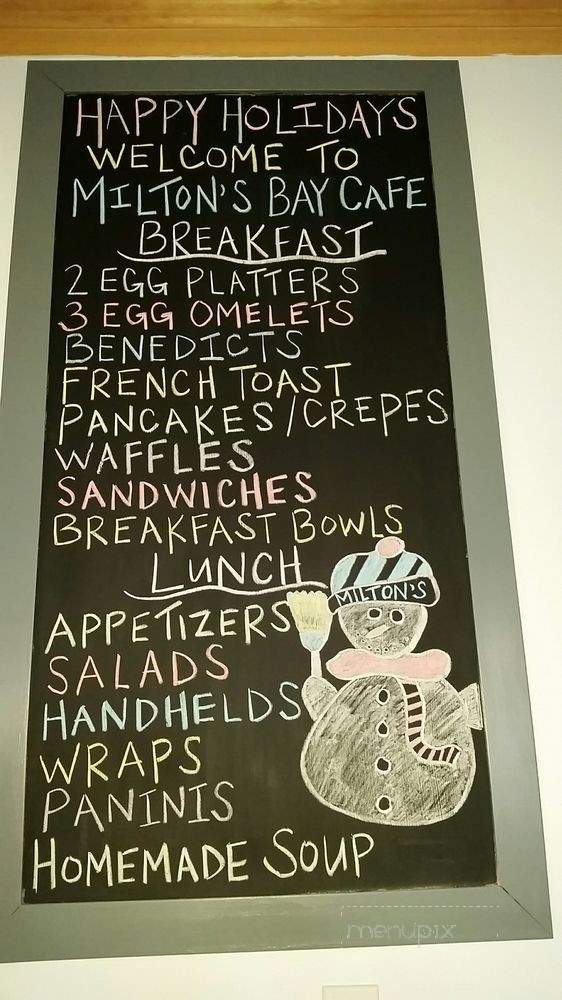 HAPPY HOLIDAYS
WELCOME TO
MILTON'S BAY CAFE
BREAKFAST
2 EGG PLATTERS
3 EGG OMELETS
BENEDICTS
FRENCH TOAST
PANCAKES/CREPES
WAFFLES
SANDWICHES
BREAKFAST BOWLS
LUNCH
MILTON'S
APPETIZERS
SALADS
HANDHELDS
WRAPS
PANINIS
HOMEMADE SOUP
menupix